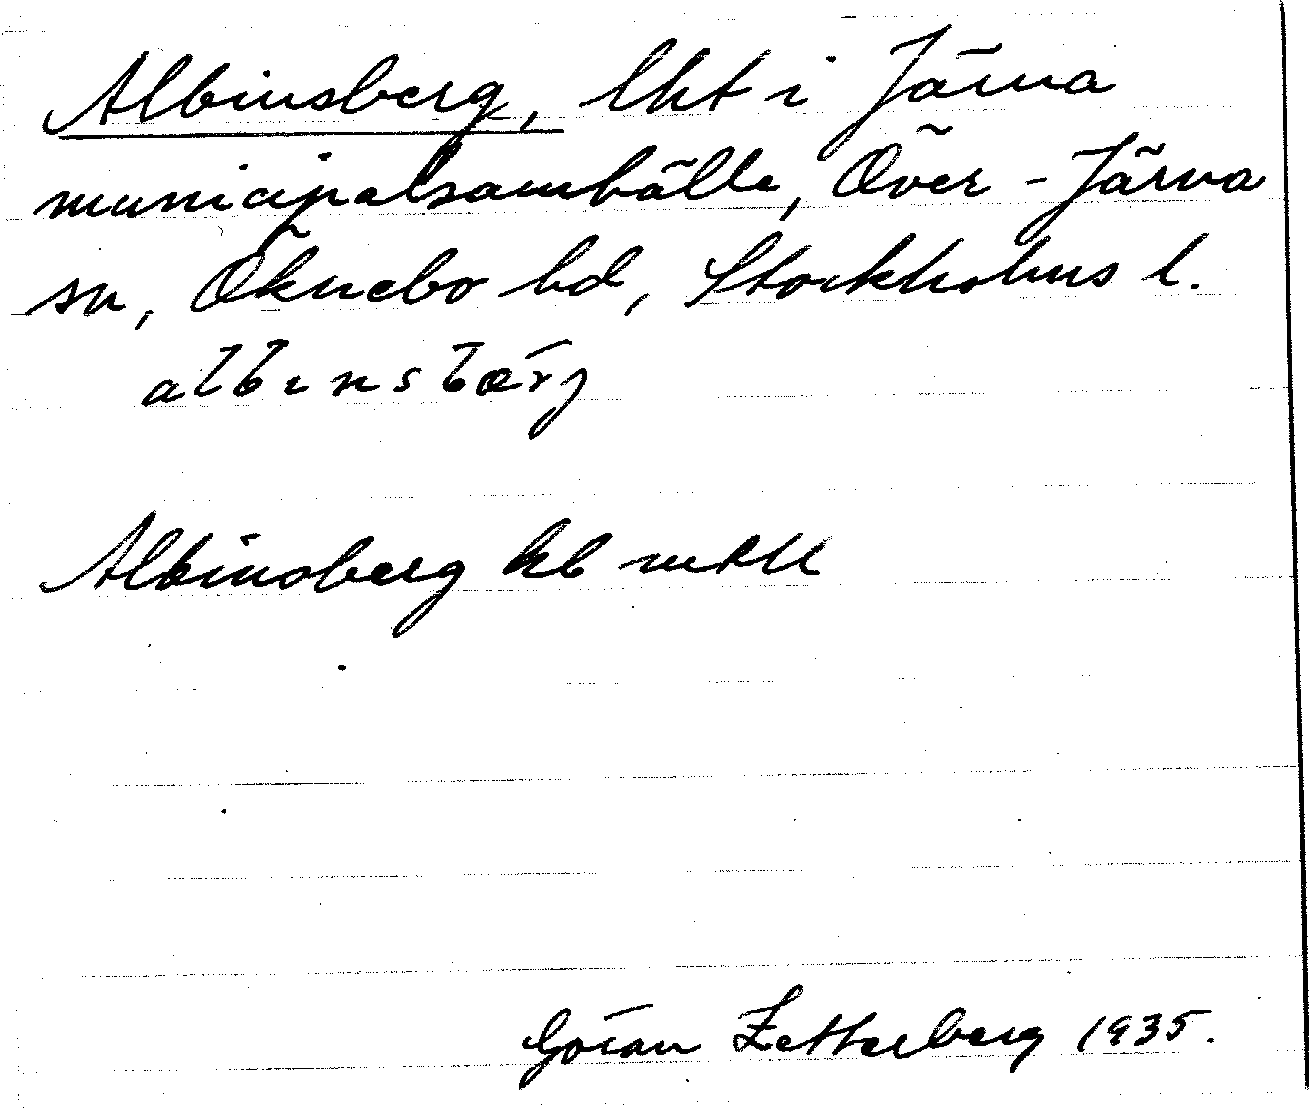 Albinsberg, lht i Järna
municipalsamhälle, Över-Järna
sn, Öknebo hd, Stockholms l.
albinsbærj
Albinsberg
Göran Zetterberg 1935.